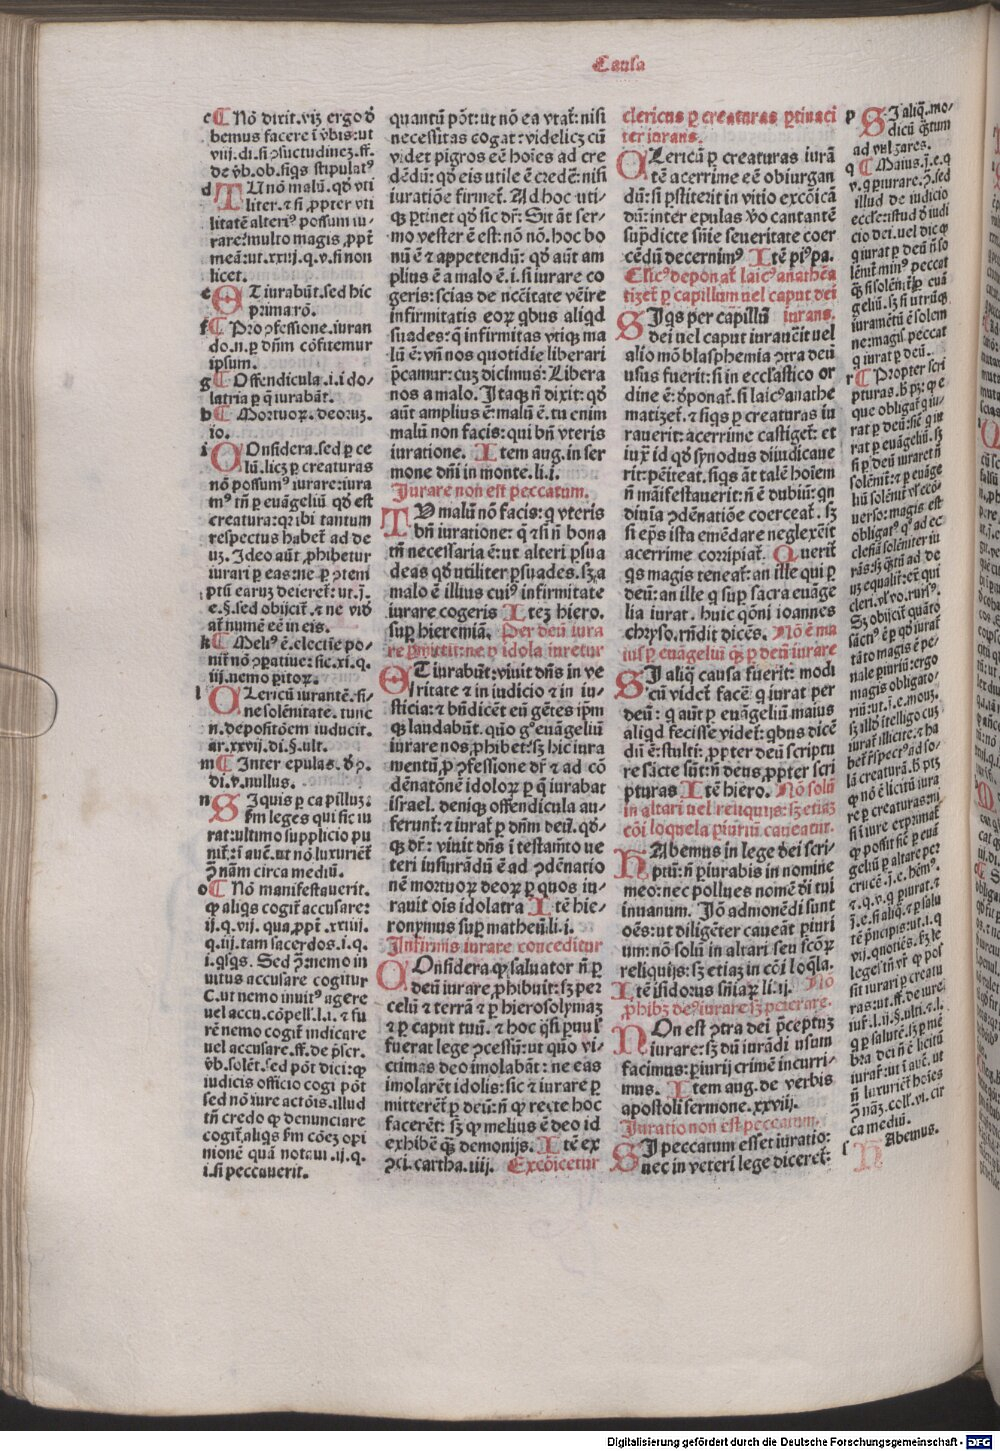 Causa
c ¶ Nō dixit. viz ergo d̄
bemus facere ī v̄bis: ut
viij. di. si ꝯsuetudinez. ff.
de v̄b. ob. siqs stipulatꝰ
d TU nō malū. qđ vti
liter. ⁊ si ꝓpter vti
litatē alteriꝰ possum iu-
rare: multo magis ꝓpt̄
meā: ut. xxij. q. v. si non
licet.
e ET iurabūt. sed hic
prima rō.
f ¶ Pro ꝯfessione. iuran
do. n. ꝑ dn̄m cōfitemur
ipsum.
g ¶ Offendicula. i. ido-
latria ꝑ q̄ iurabāt.
h ¶ Mortuoꝝ. deoruz.
io.
i COnsidera. sed ꝑ ce
lū. licz ꝑ creaturas
nō possumꝰ iurare: iura
mꝰ tn̄ ꝑ euāgeliū qđ est
creatura: qr ibi tantum
respectus habet̄ ad de
uz. Ideo aūt ꝓhibetur
iurari ꝑ eas: ne ꝑ ꝯtem
ptū earuz deieret̄: ut. j.
e. §. sed obijcit̄. ⁊ ne vid̄
at̄ numē eē in eis.
k ¶ Melꝰ ē. electiē po-
nit̄ nō ꝯpatiue: sic. xi. q.
iij. nemo ꝑitoꝝ.
l CLericū iurantē. si-
ne solēnitate. tunc
n. depositōem iuducit.
ar. xxvij. di. §. ult.
m ¶ Inter epulas. d̄ ꝯ.
di. v. nullus.
n SIquis ꝑ capilluz:
s̄m leges qui sic iu
rat: ultimo supplicio pu
nit̄: ī auē. ut nō luxuriēt̄
ꝯ nām circa mediū.
o ¶ Nō manifestauerit.
ꝙ aliqs cogit̄ accusare:
ij. q. vij. qua ꝓpt̄. xxiiij.
q. iij. tam sacerdos. i. q.
i. qsqs. Sed ꝯ̄: nemo in
uitus accusare cogitur
C. ut nemo inuitꝰ agere
uel accu. cōpell̄. l. i. ⁊ fu
rē nemo cogit̄ indicare
uel accusare. ff. de p̄scr.
v̄b. solēt. sed pōt dici: ꝙ
iudicis officio cogi pōt
sed nō iure actōis. illud
tn̄ credo ꝙ denunciare
cogit̄ aliqs s̄m cōez opi
nionē quā notaui. ij. q.
i. si peccauerit.
quantū pōt: ut nō ea vtat̄: nisi
necessitas cogat: videlicz cū
videt pigros eē hoīes ad cre
dēdū: qđ eis utile ē credē: nisi
iuratiōe firmet̄. Ad hoc uti-
qꝫ ꝑtinet qđ sic dr̄: Sit āt ser-
mo vester ē est: nō nō. hoc bo
nū ē ⁊ appetendū: qđ aūt am
plius ē a malo ē. i. si iurare co
geris: scias de nēcitate vēire
infirmitatis eoꝝ qbus aliqd
suades: q̄ infirmitas vtiqꝫ ma
lū ē: vn̄ nos quotidie liberari
p̄camur: cuz dicimus: Libera
nos a malo. Itaqꝫ n̄ dixit: qđ
aūt amplius ē: malū ē. tu enim
malū non facis: qui bn̄ vteris
iuratione. Item aug. in ser
mone dn̄i in monte. li. i.
Jurare non est peccatum.
TU malū nō facis: q vteris
bn̄ iuratione: q̄ ⁊ si n̄ bona
tn̄ necessaria ē: ut alteri ꝑsua
deas qđ utiliter ꝑsuades. sꝫ a
malo ē illius cuiꝰ infirmitate
iurare cogeris Itez hiero.
suꝑ hieremiā. Per deū iura
re ꝑmittit̄: ne ꝑ idola iuretur
ET iurabūt: viuit dn̄s in ve
ritate ⁊ in iudicio ⁊ in iu-
sticia: ⁊ bn̄dicēt eū gētes ip̄m
qꝫ laudabūt. quō gͦ euāgeliū
iurare nos ꝓhibet: sꝫ hic iura
mentū ꝓ ꝯfessione dr̄ ⁊ ad cō
dēnatōnē idoloꝝ ꝑ q̄ iurabat
israel. deniqꝫ offendicula au-
ferunt̄: ⁊ iurat̄ ꝑ dn̄m deū. qđ-
qꝫ dr̄: viuit dn̄s ī testamēto ue
teri insiurādū ē ad ꝯdēnatio
nē mortuoꝝ deoꝝ ꝑ quos iu-
rauit oīs idolatra Itē hie-
ronymus suꝑ matheū. li. i.
Infirmis iurare conceditur
COnsidera ꝙ saluator n̄ ꝑ
deū iurare ꝓhibuit: sꝫ per
celū ⁊ terrā ⁊ ꝑ hierosolymaz
⁊ ꝑ caput tuū. ⁊ hoc q̄si ꝑuul̄
fuerat lege ꝯcessū: ut quō vi-
ctimas deo imolabāt: ne eas
imolarēt idolis: sic ⁊ iurare ꝑ
mitterēt̄ ꝑ deū: n̄ ꝙ recte hoc
facerēt: sꝫ ꝙ melius ē deo id
exhibē qꝫ demonijs. Itē ex
ꝯci. cartha. iiij. Excōicetur
clericus ꝑ creaturas ꝑtinaci
ter iurans.
CLericū ꝑ creaturas iurā
tē acerrime eē obiurgan
dū: si ꝑstiterit in vitio excōicā
dū: inter epulas v̄o cantantē
sup̄dicte sn̄ie seueritate coer
cēdū decernimꝰ Itē piꝰ pa.
Clicꝰ deponat̄ laicꝰ anathēa
tizet̄ ꝑ capillum uel caput dei
iurans.
SIqs per capillū
dei uel caput iurauēit uel
alio mō blasphemia ꝯtra deū
usus fuerit: si in ecclāstico or
dine ē: d̄ponat̄. si laicꝰ anathe
matizet̄. ⁊ siqs ꝑ creaturas iu
rauerit: acerrime castiget̄: et
iux̄ id qđ synodus diiudicaue
rit: pēiteat. siqs āt talē hoīem
n̄ māifestauerit: n̄ ē dubiū: qn
diuīa ꝯdēnatiōe coerceat̄. sꝫ
si ep̄s ista emēdare neglexēit
acerrime corripiat̄. Querit̄
qs magis teneat̄: an ille qui ꝑ
deū: an ille q suꝑ sacra euāge
lia iurat. huic qōni ioannes
chryso. rn̄dit dicēs. Nō ē ma
ius ꝑ euāgeliū qꝫ ꝑ deū iurare
SI aliq̄ causa fuerit: modi
cū videt̄ facē: q iurat per
deū: q aūt ꝑ euāgeliū maius
aliqd fecisse videt̄: qbus dicē
dū ē: stulti: ꝓpter deū scriptu
re sācte sūt: n̄ deus ꝓpter scri
pturas Itē hiero. Nō solū
in altari uel reliquijs: sꝫ etiaz
cōi loquela ꝑiuriū caueatur.
HAbemus in lege dei scri-
ptū: n̄ ꝑiurabis in nomine
meo: nec pollues nomē di tui
inuanum. Iō admonēdi sunt
oēs: ut diligēter caueāt ꝑiuri
um: nō solū in altari seu scōꝝ
reliquijs: sꝫ etiaz in cōi loqla.
Itē isidorus sn̄iaꝝ li. ij. Nō
ꝓhibꝫ deꝰ iurare sꝫ peierare.
NOn est ꝯtra dei p̄ceptuz
iurare: sꝫ dū iurādi usum
facimus: ꝑiurij crimē incurri-
mus. Item aug. de verbis
apostoli sermone. xxviij.
Juratio non est peccatum.
SI peccatum esset iuratio:
nec in veteri lege diceret̄:
p SI aliq̄. mo-
dicū q̄ntum
ad vulgares.
q ¶ Maius. j. e. q
v. q ꝑiurare. ꝯ̄. sed
illud de iudicio
eccle: istud d̄ iudi
cio dei. uel dic ꝙ
q iurat ꝑ deū n̄ so
lēnit̄ minꝰ peccat
qꝫ si solēnit̄ ꝑ euā
geliū. sꝫ si utrūqꝫ
iuramētū ē solem
ne: magis peccat
q iurat ꝑ deū.
r ¶ Propter scri
pturas. hꝫ pꝫ: ꝙ e
que obligat̄ q iu-
rat ꝑ deū: sic̄ q iu
rat ꝑ euāgeliū. sꝫ
si ꝑ deū iuraret n̄
solēnit̄: ⁊ ꝑ euāge
liū solēnit̄ vl̄ ecō-
uerso: magis est
obligatꝰ qꝰ ad ec
clesiā solēniter iu
rās: sꝫ q̄ntū ad de
uz equalit̄: et̄ qui
cleri. vl̄ vo. rursꝰ.
Sꝫ obijcit̄ quāto
sāctiꝰ ē ꝑ qđ iurat̄
tāto magis ē pe-
nale ꝑiuriū: ergo
magis obligato-
riū: ut. j. e. mouz.
sꝫ illđ ītelligo cuz
iurat̄ illicite. ⁊ ha
bet̄ r̄spectꝰ ad so-
lā creaturā. hꝫ ptꝫ
ꝙ nō ē licitū iura
re ꝑ creaturas: ni
si ī iure exprimat̄
ꝙ possit sic̄ ꝑ euā
geliū ꝑ altare per
crucē. j. e. hēmꝰ.
⁊. q. v. q ꝑiurat. ⁊
j. e. si aliq̄. ⁊ ꝑ salu
tē pn̄cipis: ut. i. q
vij. quotiēs. sꝫ le
leges tn̄ vr̄ ꝙ pos
sit iurari ꝑ creatu
ras: ut. ff. de iure
iur̄. l. ij. §. ulti. ⁊. l.
q ꝑ salutē. sꝫ ꝑ mē
bra dei n̄ ē licitū
iurar̄: ut ī auē. ut
n̄ luxuriēt̄ hoīes
ꝯ nāz. coll̄. vi. cir
ca mediū.
s HAbemus.
Digitalisierung gefördert durch die Deutsche Forschungsgemeinschaft - DFG